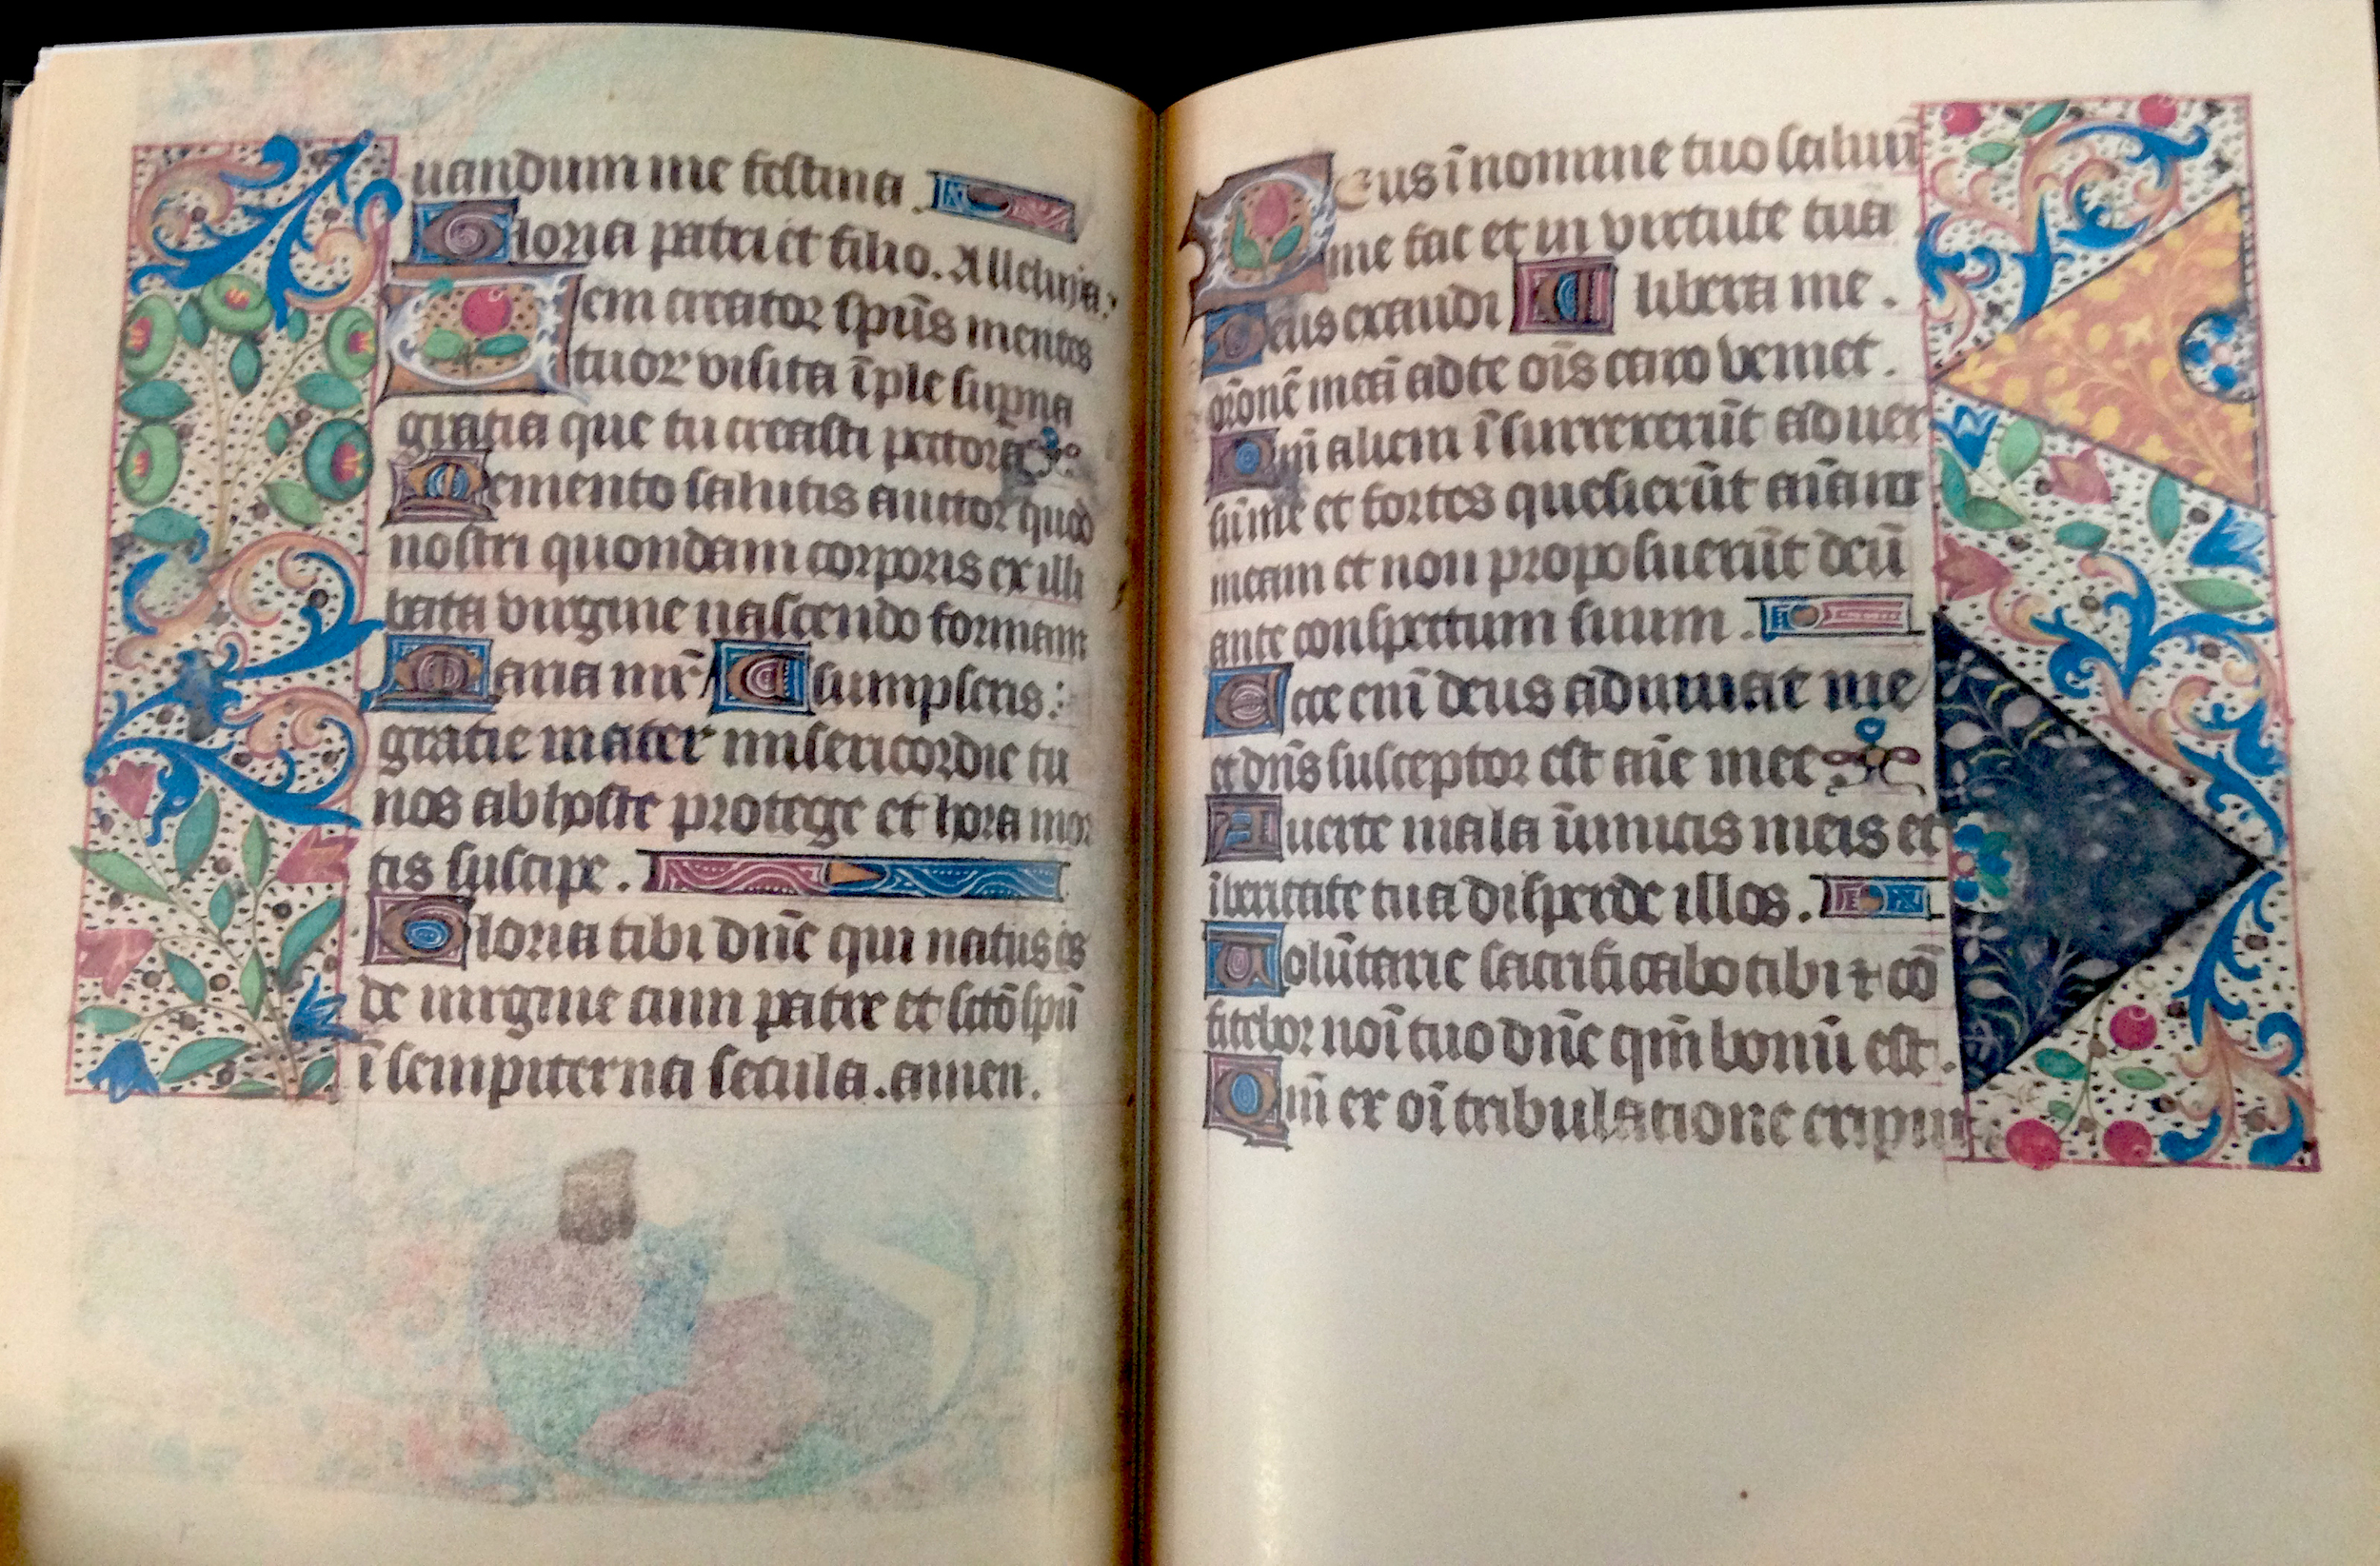 uandum me festina.
Gloria patri et filio. Alleluia.
Veni creator spūs mentes
tuor visita īple supna
gratia que tu creasti pectora
Memento salutis auctor quod
nostri quondam corporis ex illi
bata virgine nascendo formam
Maria mr̄ Asumpseris:
gratie mater misericordie tu
nos ab hoste protege et hora mor
tis suscipe.
Gloria tibi dn̄e qui natus es
de virgine cum patre et sctō spū
ī sempiterna secula. amen.
Deus ī nomine tuo saluū
me fac et in virtute tua
Deus exaudi A libera me.
or̄onē meā ad te oīs caro veniet.
Qm̄ alieni īsurrexerūt aduer
sū me et fortes quesierūt aīam
meam et non proposuerūt deū
ante conspectum suum.
Ecce enī deus adiuuat me
et dn̄s susceptor est aīe mee
Auerte mala īimicis meis et
ī veritate tua disperde illos.
Volūtarie sacrificabo tibi ⁊ cō
fitebor noī tuo dn̄e qm̄ bonū est.
Qm̄ ex oī tribulatione eripui